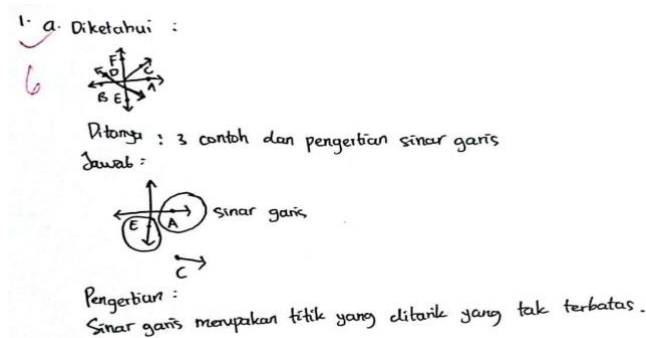 1. a. Diketahui :
6
F
D C
B E A
Ditanya : 3 contoh dan pengertian sinar garis
Jawab :
E A sinar garis
C
Pengertian :
Sinar garis merupakan titik yang ditarik yang tak terbatas.